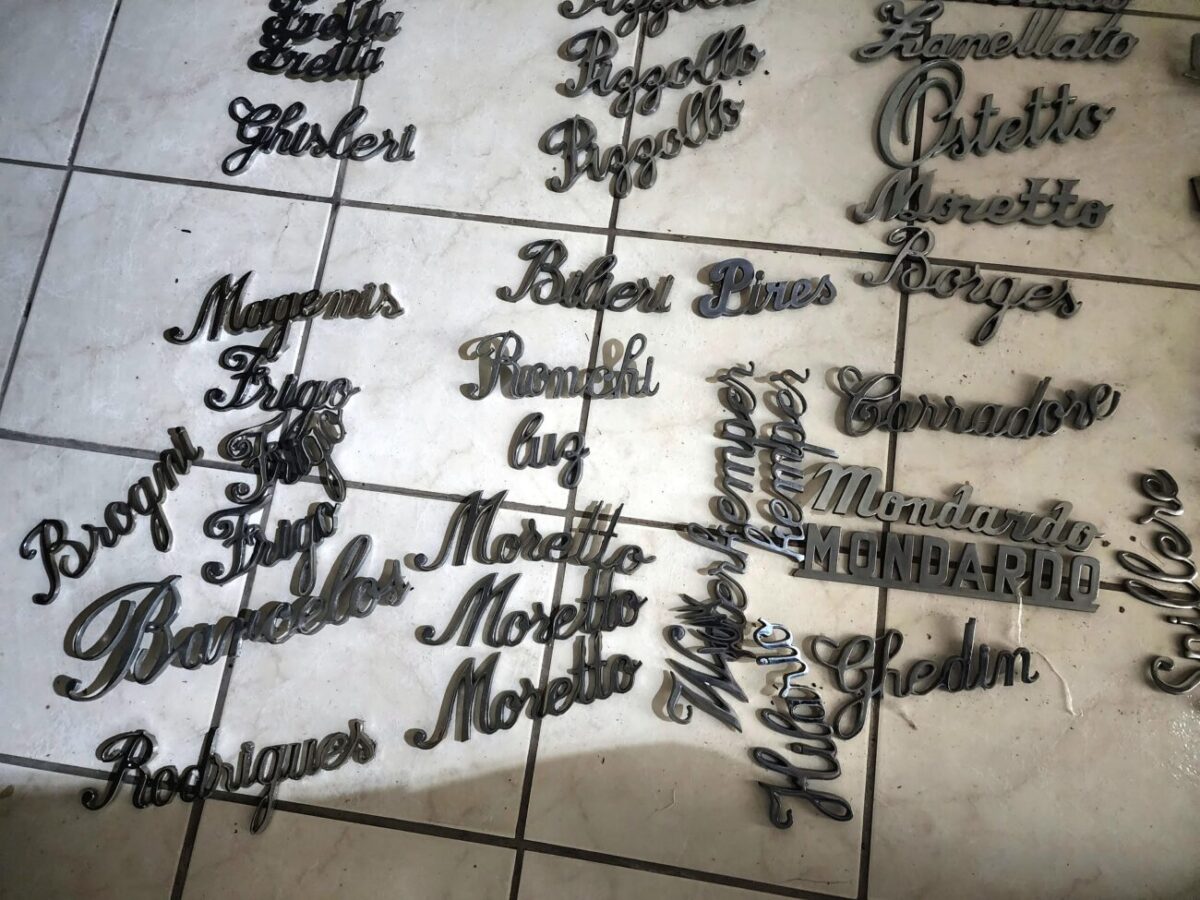 Fretta
Fretta
Ghisleri
Pizzollo
Pizzollo
Zanellato
Ostetto
Moretto
Borges
Magenis
Bilieri
Pires
Frigo
Ronchi
Corradore
Frigo
luz
Kemper
Kemper
Brogni
Frigo
Moretto
Mondardo
MONDARDO
Barcelos
Moretto
Ghedin
Moretto
Hilario
Rodrigues